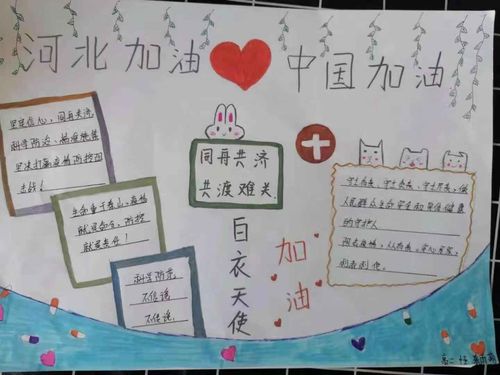 河北加油 中国加油
坚定信心,同舟共济,
科学防治,精准施策
坚决打赢疫情防控阻
击战!
生命重于泰山,疫情
就是命令,防控
就是责任!
科学防范
不信谣
不传谣
同舟共济
共渡难关
白衣天使
加油
守土有责、守土负责、守土尽责,做
人民群众生命安全和身体健康
的守护人
高二